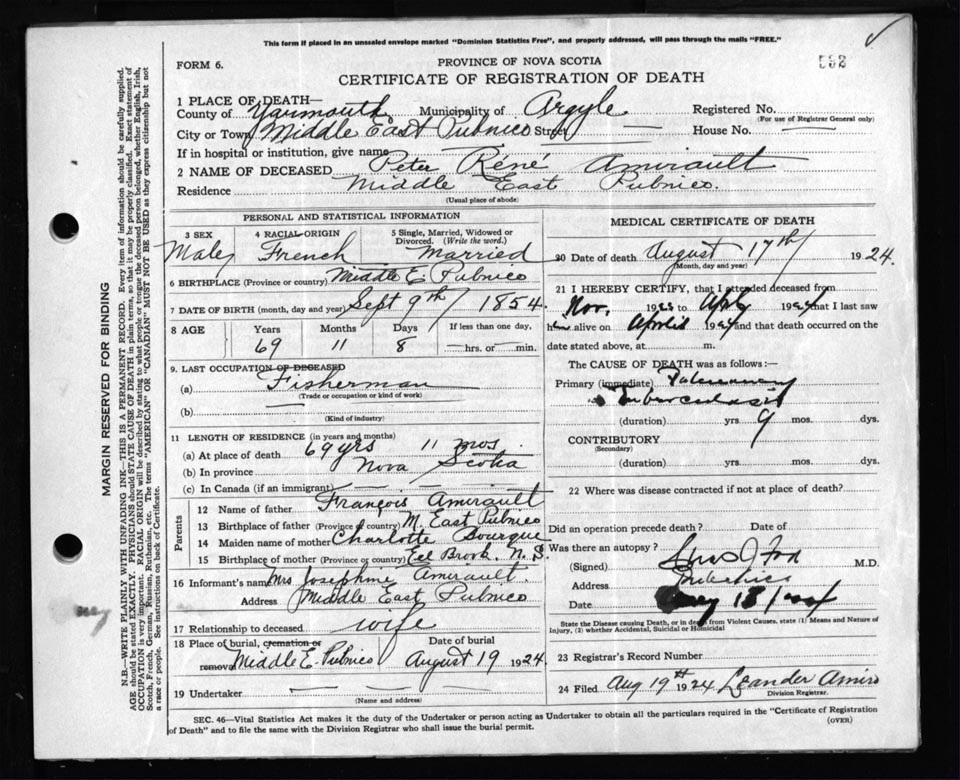 This form if placed in an unsealed envelope marked "Dominion Statistics Free", and properly addressed, will pass through the mails "FREE."
✓
592
FORM 6.
PROVINCE OF NOVA SCOTIA
CERTIFICATE OF REGISTRATION OF DEATH
1 PLACE OF DEATH—
County of Yarmouth Municipality of Argyle Registered No.
(For use of Registrar General only)
City or Town Middle East Pubnico Street — House No. —
If in hospital or institution, give name —
2 NAME OF DECEASED Peter Réné Amirault
Residence Middle East Pubnico.
(Usual place of abode)
PERSONAL AND STATISTICAL INFORMATION
3 SEX 4 RACIAL ORIGIN 5 Single, Married, Widowed or Divorced. (Write the word.)
Male French Married
6 BIRTHPLACE (Province or country) Middle E. Pubnico
7 DATE OF BIRTH (month, day and year) Sept 9th / 1854.
8 AGE Years Months Days If less than one day,
69 11 8 —hrs. or —min.
9. LAST OCCUPATION OF DECEASED
(a) Fisherman
(Trade or occupation or kind of work)
(b)
(Kind of industry)
11 LENGTH OF RESIDENCE (in years and months)
(a) At place of death 69 yrs 11 mos
(b) In province Nova Scotia
(c) In Canada (if an immigrant) — —
Parents
12 Name of father François Amirault
13 Birthplace of father (Province or country) M. East Pubnico
14 Maiden name of mother Charlotte Bourque
15 Birthplace of mother (Province or country) Eel Brook. N. S.
16 Informant's name Mrs Josephine Amirault.
Address Middle East Pubnico
17 Relationship to deceased wife
18 Place of burial, cremation or removal Middle E. Pubnico Date of burial August 19 1924
19 Undertaker — —
(Name and address)
MEDICAL CERTIFICATE OF DEATH
20 Date of death August 17th / 1924.
(Month, day and year)
21 I HEREBY CERTIFY, that I attended deceased from
Nov. 1923 to Apl 1924 that I last saw
him alive on April 1924 and that death occurred on
date stated above, at m.
The CAUSE OF DEATH was as follows:—
Primary (immediate) Pulmonary
Tuberculosis
(duration) yrs 9 mos. dys.
CONTRIBUTORY
(Secondary)
(duration) yrs. mos. dys.
22 Where was disease contracted if not at place of death?
Did an operation precede death? Date of
Was there an autopsy?
(Signed) Fox M.D.
Address Pubnico
Date 18/1924
State the Disease causing Death, or in death from Violent Causes, state (1) Means and Nature of Injury, (2) whether Accidental, Suicidal or Homicidal
23 Registrar's Record Number
24 Filed Aug 19th 1924 Leander Amiro
Division Registrar.
SEC. 46—Vital Statistics Act makes it the duty of the Undertaker or person acting as Undertaker to obtain all the particulars required in the "Certificate of Registration of Death" and to file the same with the Division Registrar who shall issue the burial permit.
(OVER)
MARGIN RESERVED FOR BINDING
N.B.—WRITE PLAINLY WITH UNFADING INK—THIS IS A PERMANENT RECORD. Every item of information should be carefully supplied.
AGE should be stated EXACTLY. PHYSICIANS should STATE CAUSE OF DEATH in plain terms, so that it may be properly classified. Exact statement of
OCCUPATION is very important. RACIAL ORIGIN will be described by stating to what people or tongue the deceased person belonged, whether English, Irish,
Scotch, French, German, Russian, Ruthenian, etc. The terms "AMERICAN" OR "CANADIAN" MUST NOT BE USED as they express citizenship but not
a race or people. See instructions on back of Certificate.